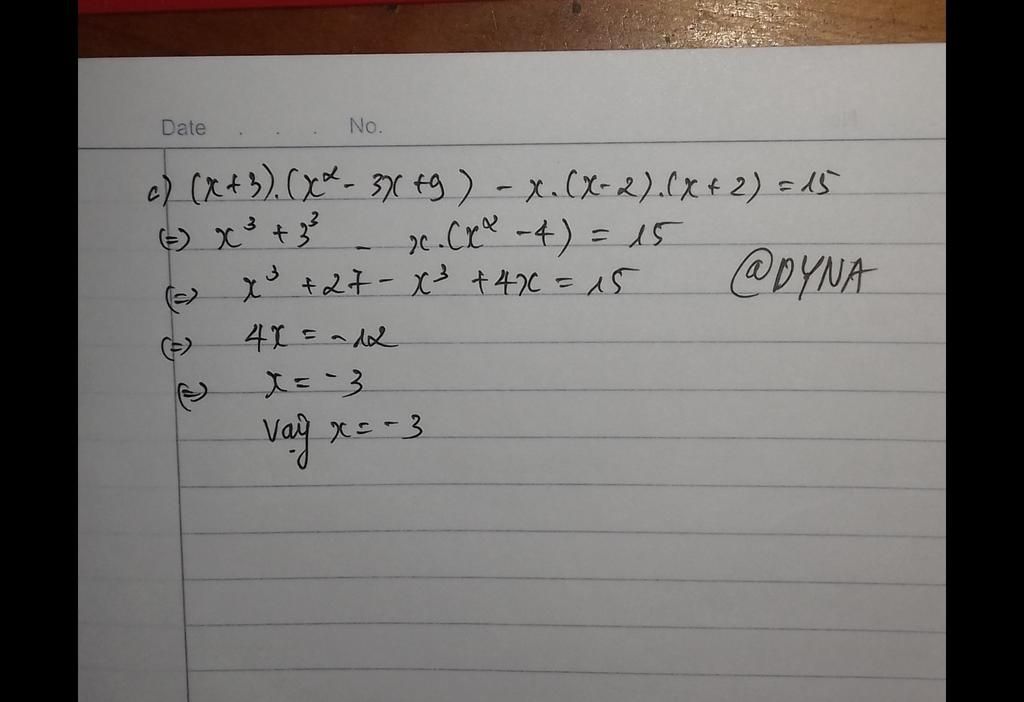 Date . . . No.
c) (x+3).(x²- 3x+9) - x.(x-2).(x+2) = 15
(=) x³ + 3³ - x.(x² -4) = 15
(=) x³ +27 - x³ +4x = 15
@DYNA
(=) 4x = -12
(=) x = -3
Vậy x = -3